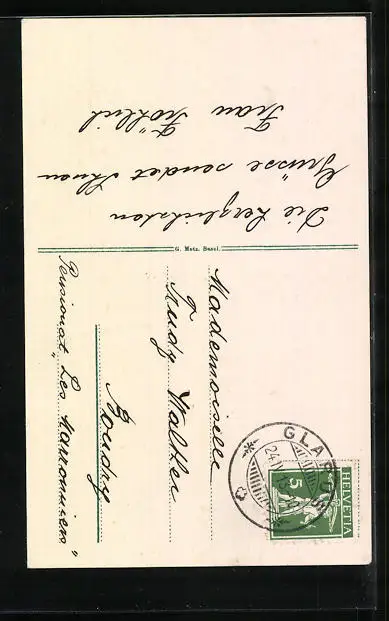 Die herzlichsten
Grüsse sendet Ihnen
Frau Fröhlich
G. Metz. Basel.
Mademoiselle
Trudy Walther
Boudry
Pensionat "Les Marronniers"
GLARUS
HELVETIA
5